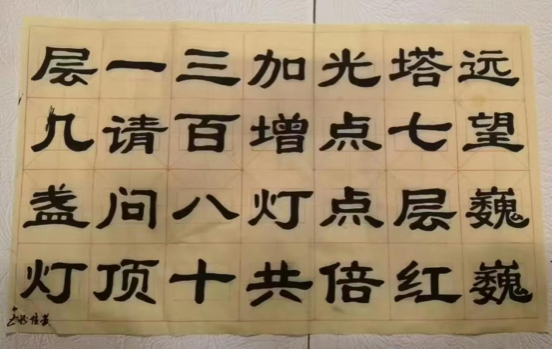 远望巍巍
塔七层红
光点点倍
加增灯共
三百八十
一请问顶
层几盏灯